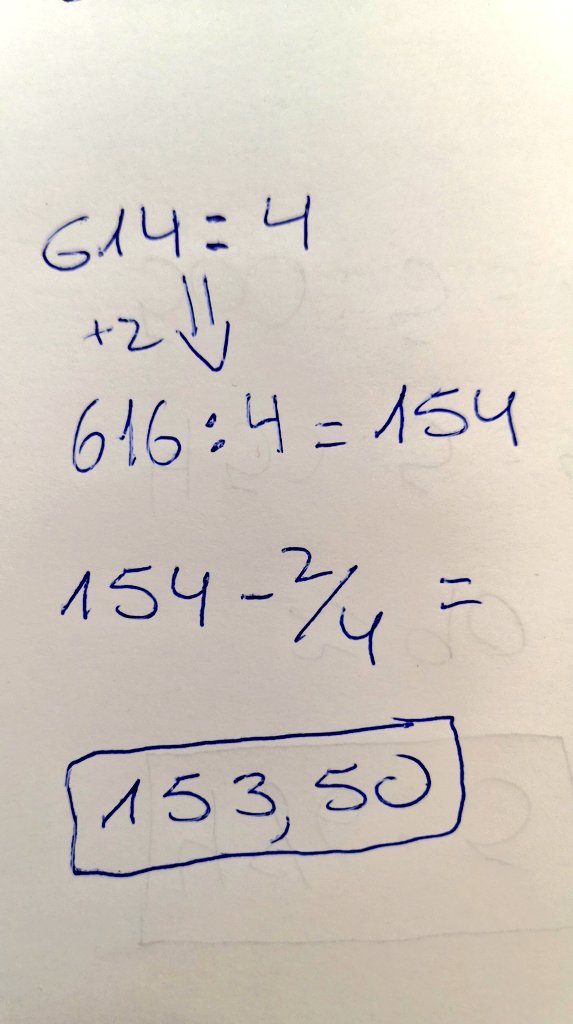 614 : 4
+2 ⇓
616 : 4 = 154
154 - 2/4 =
153,50